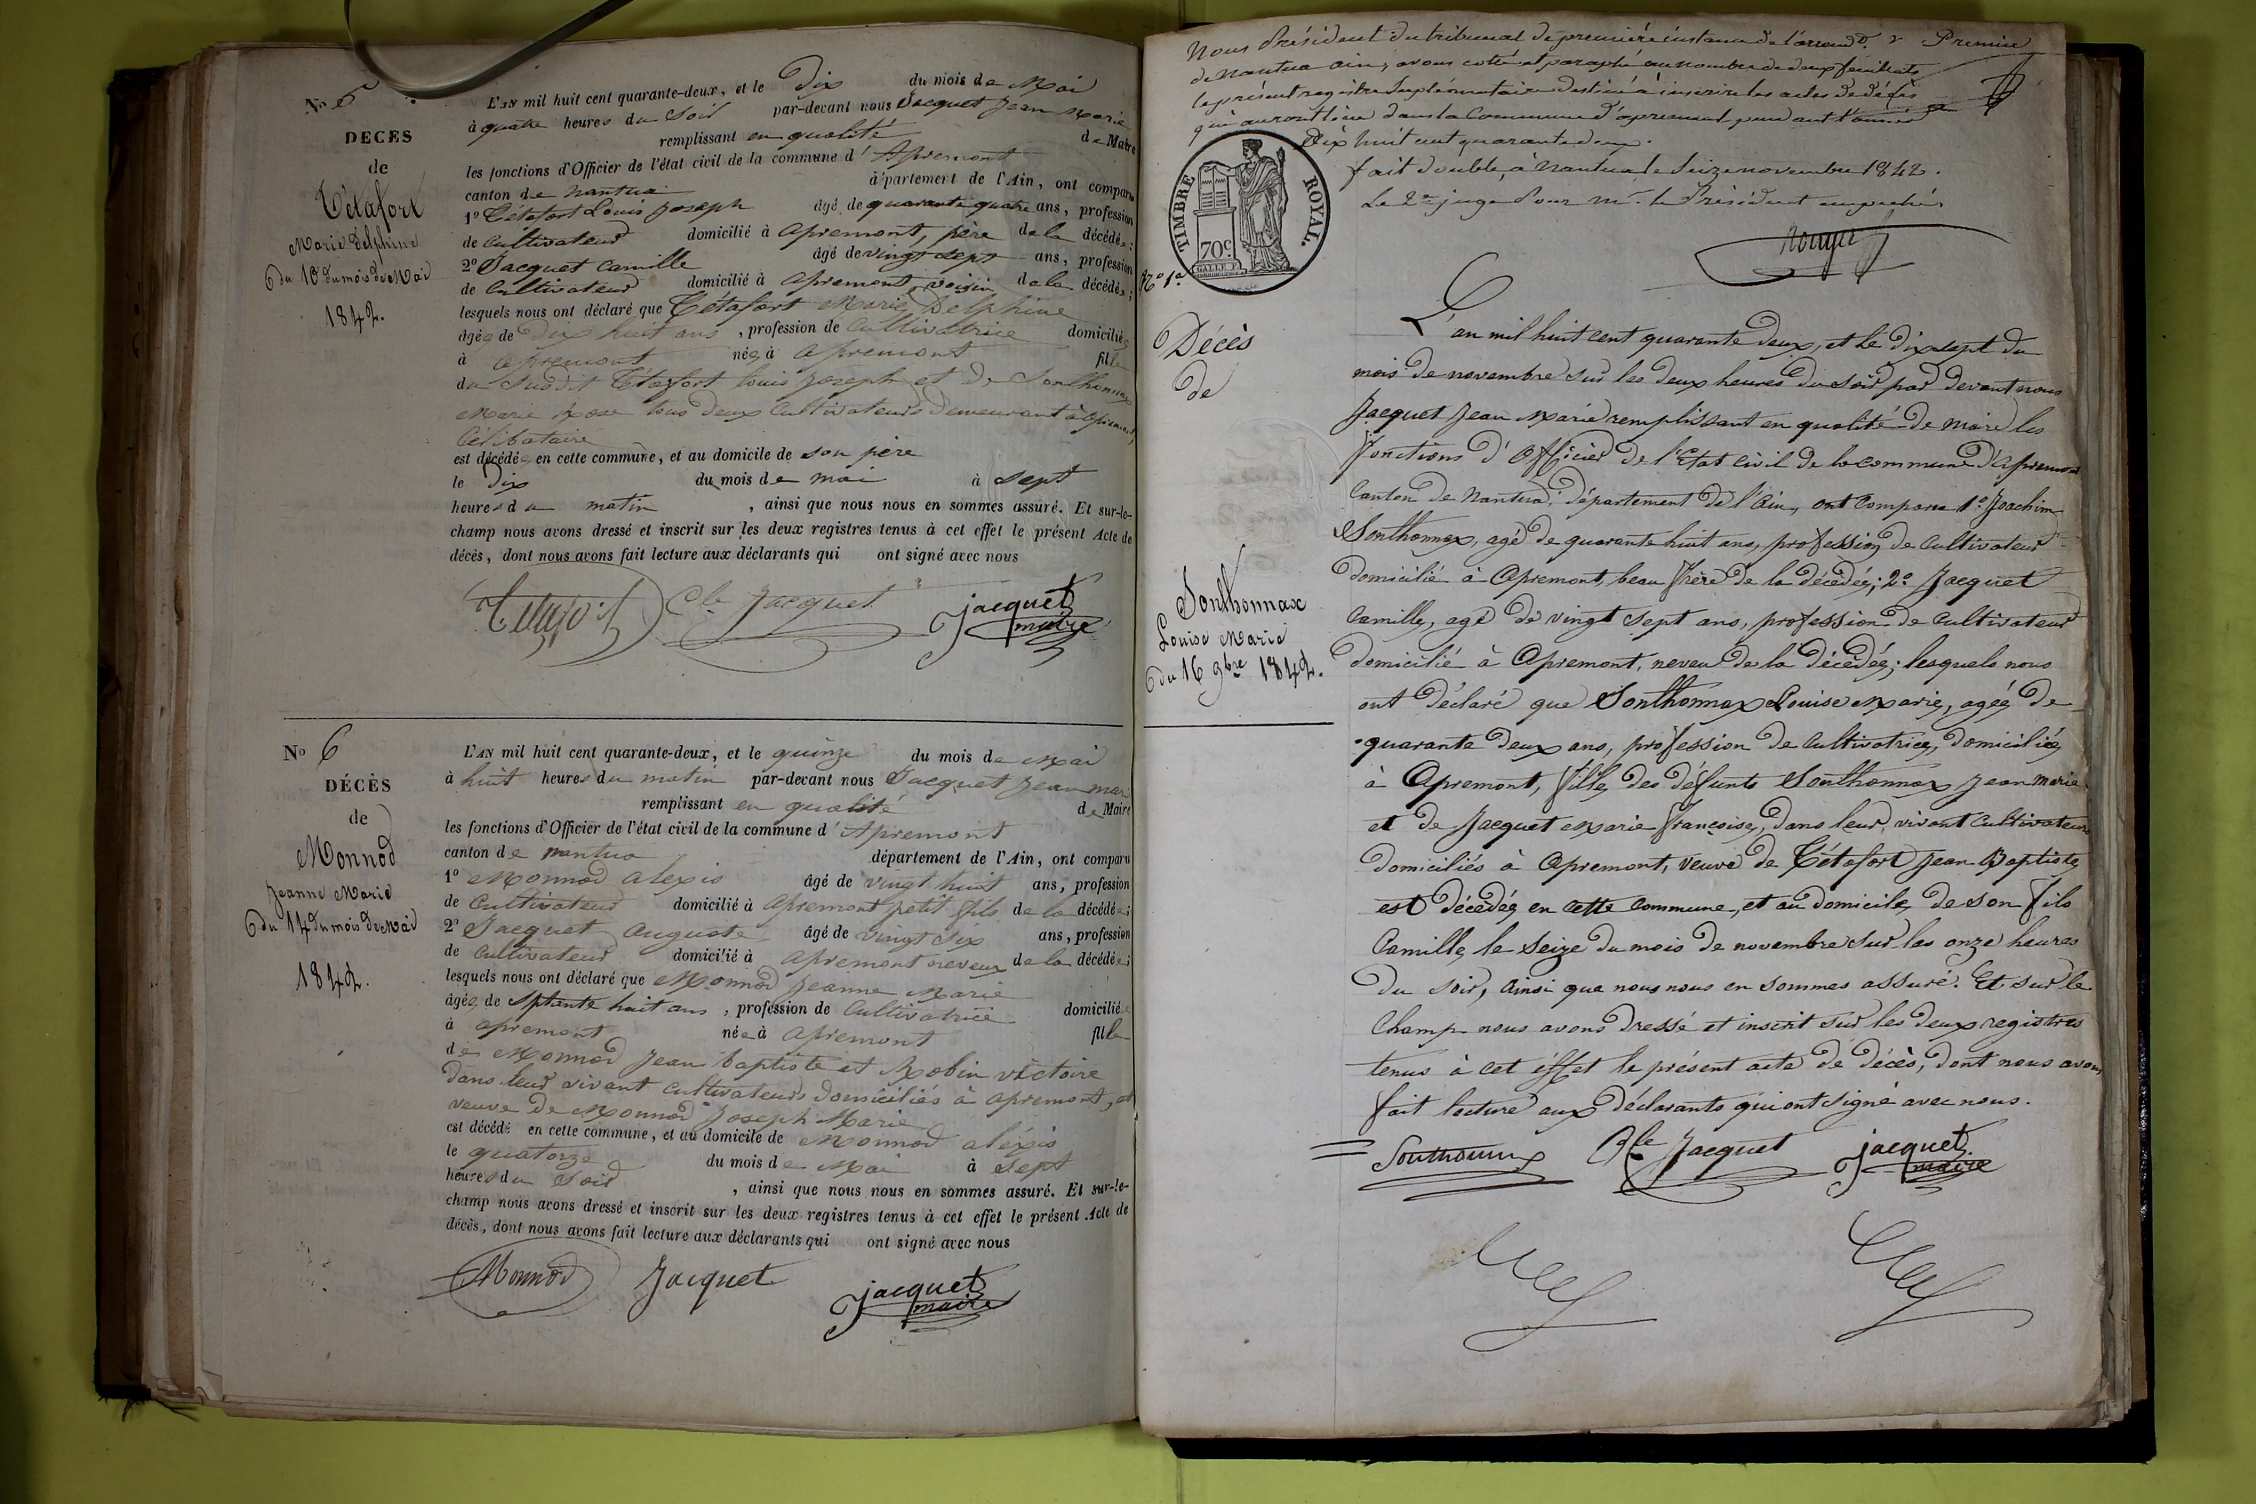 No 5
DÉCÈS
de
Tétafort
Marie Delphine
du 10 du mois de Mai
1842.
L'AN mil huit cent quarante-deux, et le Dix du mois de Mai
à quatre heures du Soir par-devant nous Jacquet Jean Marie
remplissant en qualité de Maire
les fonctions d'Officier de l'état civil de la commune d'Apremont
canton de Nantua département de l'Ain, ont comparu
1º Tétafort Louis Joseph âgé de quarante quatre ans, profession
de Cultivateur domicilié à Apremont, père de la décédée;
2º Jacquet Camille âgé de vingt sept ans, profession
de Cultivateur domicilié à Apremont, voisin de la décédée;
lesquels nous ont déclaré que Tétafort Marie Delphine
âgée de Dix huit ans, profession de Cultivatrice domiciliée
à Apremont née à Apremont fille
du Susdit Tétafort Louis Joseph et de Sonthonnax
Marie Rose tous deux Cultivateurs demeurant à Apremont,
Célibataire
est décédée en cette commune, et au domicile de son père
le Dix du mois de mai à sept
heures du matin, ainsi que nous nous en sommes assuré. Et sur-le-
champ nous avons dressé et inscrit sur les deux registres tenus à cet effet le présent Acte de
décès, dont nous avons fait lecture aux déclarants qui ont signé avec nous
Tétafort Cle Jacquet jacquet
maire
No 6
DÉCÈS
de
Monnod
Jeanne Marie
du 14 du mois de Mai
1842.
L'AN mil huit cent quarante-deux, et le quinze du mois de Mai
à huit heures du matin par-devant nous Jacquet Jean mari
remplissant en qualité de Maire
les fonctions d'Officier de l'état civil de la commune d'Apremont
canton de nantua département de l'Ain, ont comparu
1º Monnod alexis âgé de vingt huit ans, profession
de Cultivateur domicilié à Apremont petit fils de la décédée;
2º Jacquet Auguste âgé de vingt six ans, profession
de Cultivateur domicilié à Apremont neveux de la décédée;
lesquels nous ont déclaré que Monnod Jeanne Marie
âgée de septante huit ans, profession de Cultivatrice domiciliée
à apremont née à apremont fille
de Monnod Jean baptiste et Robin victoire
dans leur vivant cultivateurs domiciliés à apremont, et
veuve de Monnod Joseph Marie
est décédé en cette commune, et au domicile de Monnod aléxis
le quatorze du mois de Mai à Sept
heures du Soir, ainsi que nous nous en sommes assuré. Et sur-le-
champ nous avons dressé et inscrit sur les deux registres tenus à cet effet le présent Acte de
décès, dont nous avons fait lecture aux déclarants qui ont signé avec nous
Monnod Jacquet jacquet
maire
Nous Président du tribunal de première instance de l'arrondt. Premier
de Nantua ain, avons coté et paraphé au nombre de deux feuillets
le présent registre Suplémentaire destiné à inscrire les actes de décès
qui auront lieu dans la Commune d'apremont pendant l'année
Dix huit cent quarante deux.
fait double, à Nantua le Seize novembre 1842.
Le 2e juge Pour Mr. le Président empeché
TIMBRE ROYAL.
70c
No 1er
Décès
de
Sonthonnax
Louise Marie
du 16 9bre 1842.
L'an mil huit cent quarante deux, et le dix sept du
mois de novembre sur les deux heures du soir par devant nous
Jacquet Jean Marie remplissant en qualité de maire les
fonctions d'Officier de l'Etat civil de la commune d'Apremont
Canton de Nantua, département de l'Ain, ont comparu 1º Joachim
Sonthonnax, agé de quarante huit ans, profession de Cultivateur
domicilié à Apremont, beau frère de la décédée; 2º Jacquet
Camille, agé de vingt sept ans, profession de Cultivateur
domicilié à Apremont, neveu de la décédée; lesquels nous
ont déclaré que Sonthonnax Louise Marie, agée de
quarante deux ans, profession de Cultivatrice, domiciliée
à Apremont, fille des défunts Sonthonnax Jean Marie
et de Jacquet Marie françoise, dans leur vivant Cultivateurs
domiciliés à Apremont, veuve de Tétafort Jean Baptiste
est décédée en cette commune, et au domicile de son fils
Camille, le seize du mois de novembre sur les onze heures
du soir, ainsi que nous nous en sommes assuré. Et sur le
Champ nous avons dressé et inscrit sur les deux registres
tenus à cet éffet le présent acte de décès, dont nous avons
fait lecture aux déclarants qui ont signé avec nous.
Sonthonnax Cle Jacquet jacquet
maire